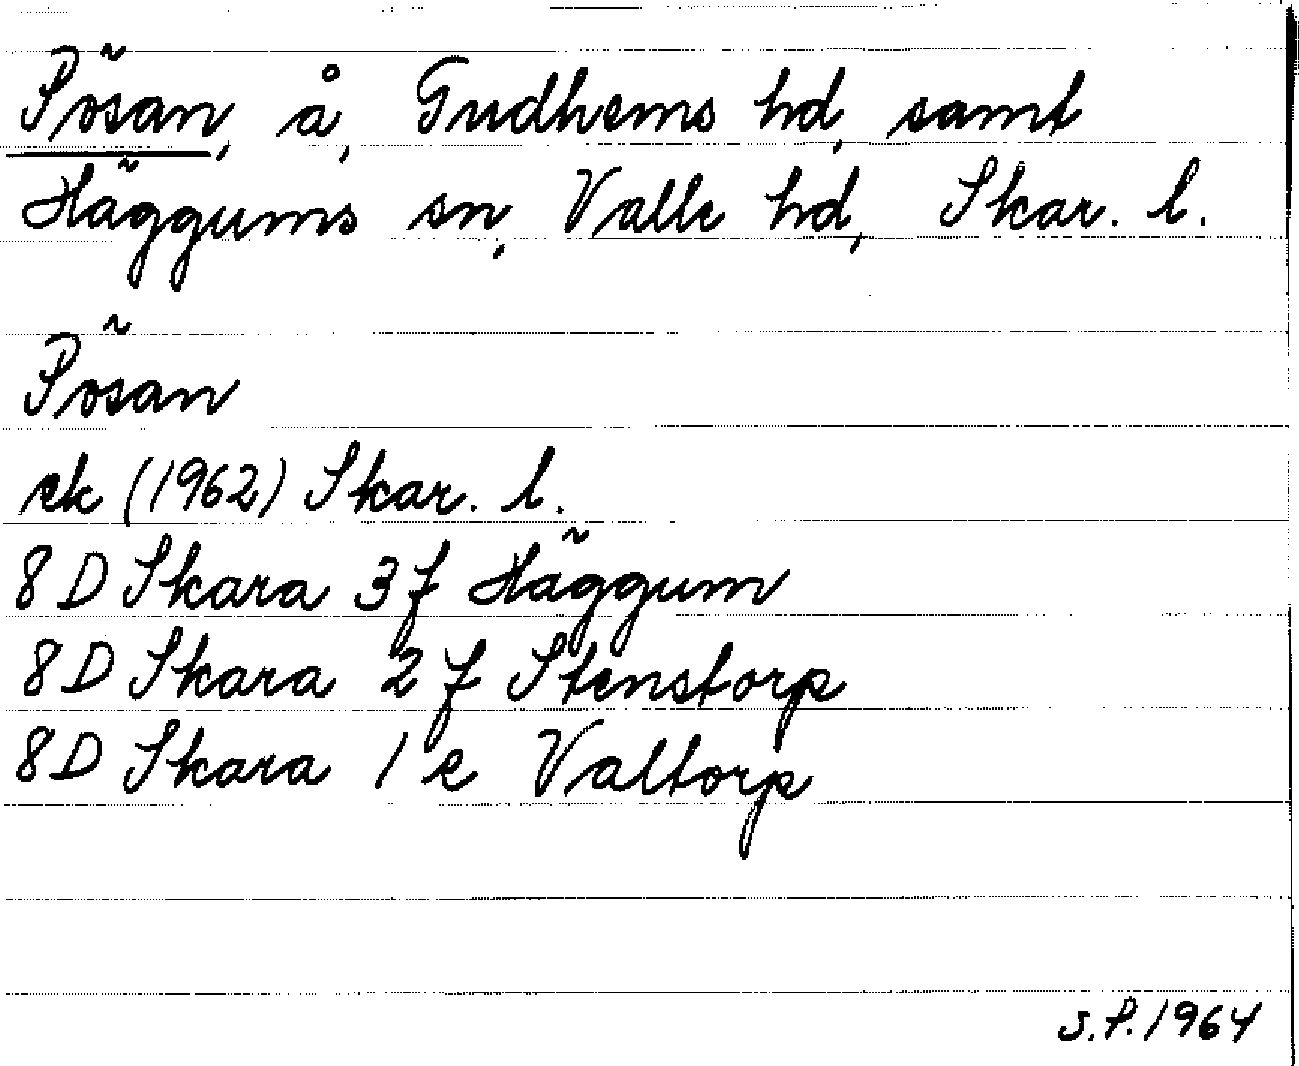 Pösan, å, Gudhems hd, samt
Häggums sn, Valle hd, Skar. l.
Pösan
ek (1962) Skar. l.
8 D Skara 3 f Häggum
8 D Skara 2 f Stenstorp
8 D Skara 1 e Valtorp
S.P. 1964